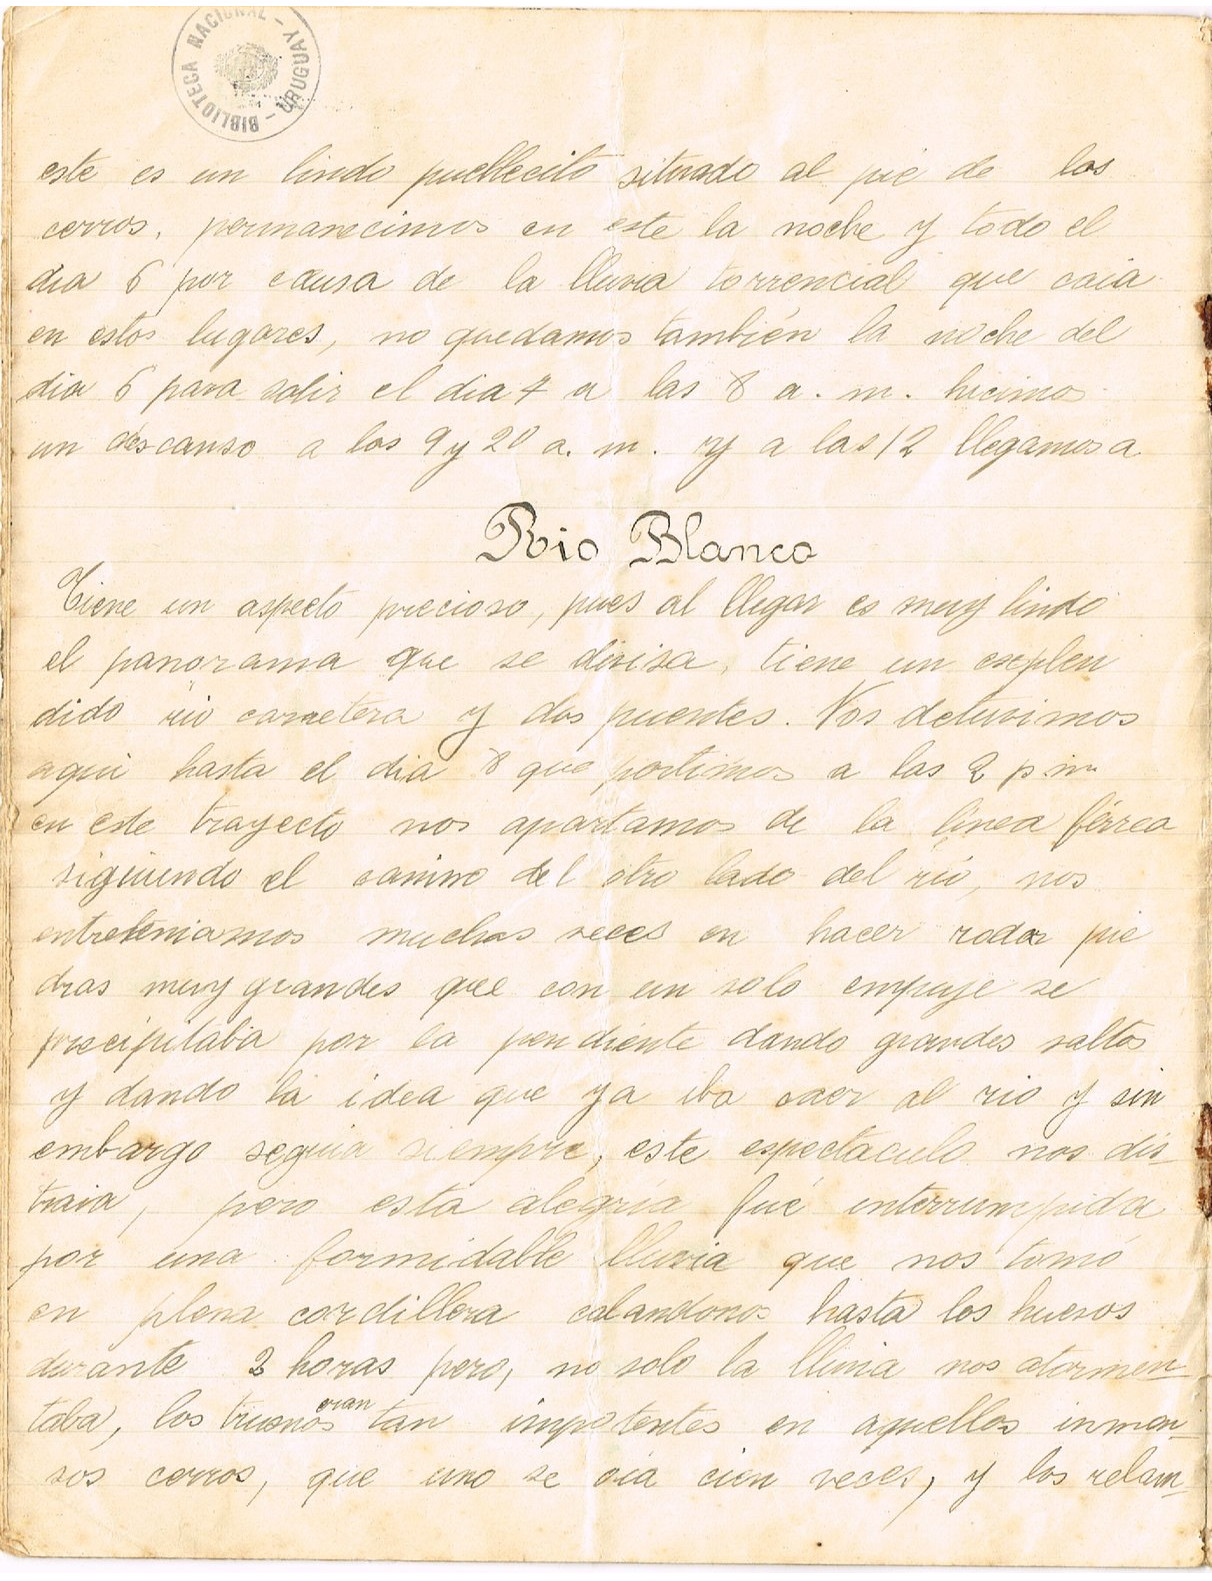 BIBLIOTECA NACIONAL - URUGUAY -
este es un lindo pueblecito situado al pie de los
cerros, permanecimos en este la noche y todo el
dia 6 por causa de la lluvia torrencial que caia
en estos lugares, no quedamos también la noche del
dia 6 para salir el dia 7 a las 8 a. m. hicimos
un descanso a los 9 y 20 a. m. y a las 12 llegamos a
Rio Blanco
Tiene un aspecto precioso, pues al llegar es muy lindo
el panorama que se divisa, tiene un esplen
dido rio carretera y dos puentes. Nos detuvimos
aqui hasta el dia 8 que partimos a las 2 p m
en este trayecto nos apartamos de la linea férrea
siguiendo el camino del otro lado del rio, nos
entreteniamos muchas veces en hacer rodar pie
dras muy grandes que con un solo empuje se
precipitaba por la pendiente dando grandes saltos
y dando la idea que ya iba caer al rio y sin
embargo seguia siempre, este espectaculo nos dis-
traia, pero esta alegria fué interrumpida
por una formidable lluvia que nos tomó
en plena cordillera calandonos hasta los huesos
durante 3 horas pero, no solo la lluvia nos atormen-
taba, los truenos eran tan impotentes en aquellos inmen-
sos cerros, que uno se oia cien veces, y los relam-